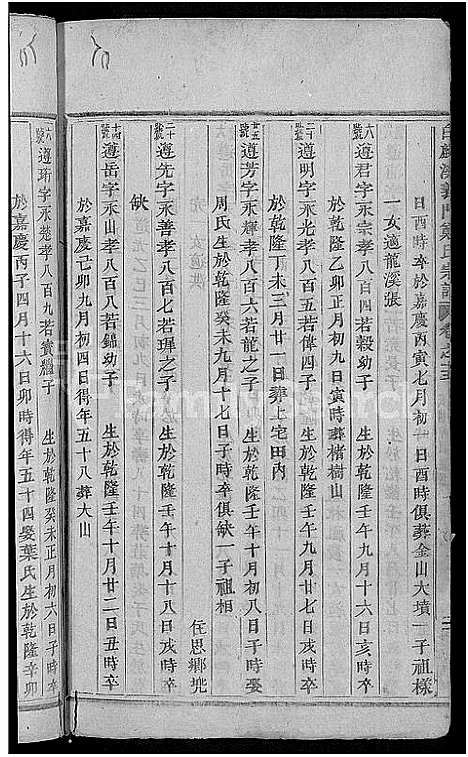 白麟溪義門鄭氏宗譜 卷之五
日酉時卒於嘉慶丙寅七月初一日酉時俱葬金山大墳一子祖樣
一女適龍溪張
六號 遵君字永宗孝八百八若穀幼子 生於乾隆壬午九月十六日亥時卒
於乾隆乙卯正月初九日寅時葬楮樹山
二十號 遵明字永光孝八百五若偉四子 生於乾隆壬午九月廿七日戌時卒
於乾隆丁未三月廿一日葬上宅田內
廿五號 遵芳字永輝孝八百六若龍之子 生於乾隆壬午十月初八日子時娶
周氏生於乾隆癸未九月十七日子時卒俱缺一子祖相
住思鄉兜
二十號 遵先字永善孝八百七若瑆之子 生於乾隆壬午十月十八日戌時卒
缺
十四號 遵岳字永山孝八百八若錦幼子 生於乾隆壬午十月廿二日丑時卒
於嘉慶己卯九月初四日得年五十八葬大山
六號 遵珩字永楚孝八百九若賓繼子 生於乾隆癸未正月初六日子時卒
於嘉慶丙子四月十六日卯時得年五十四娶葉氏生於乾隆辛卯